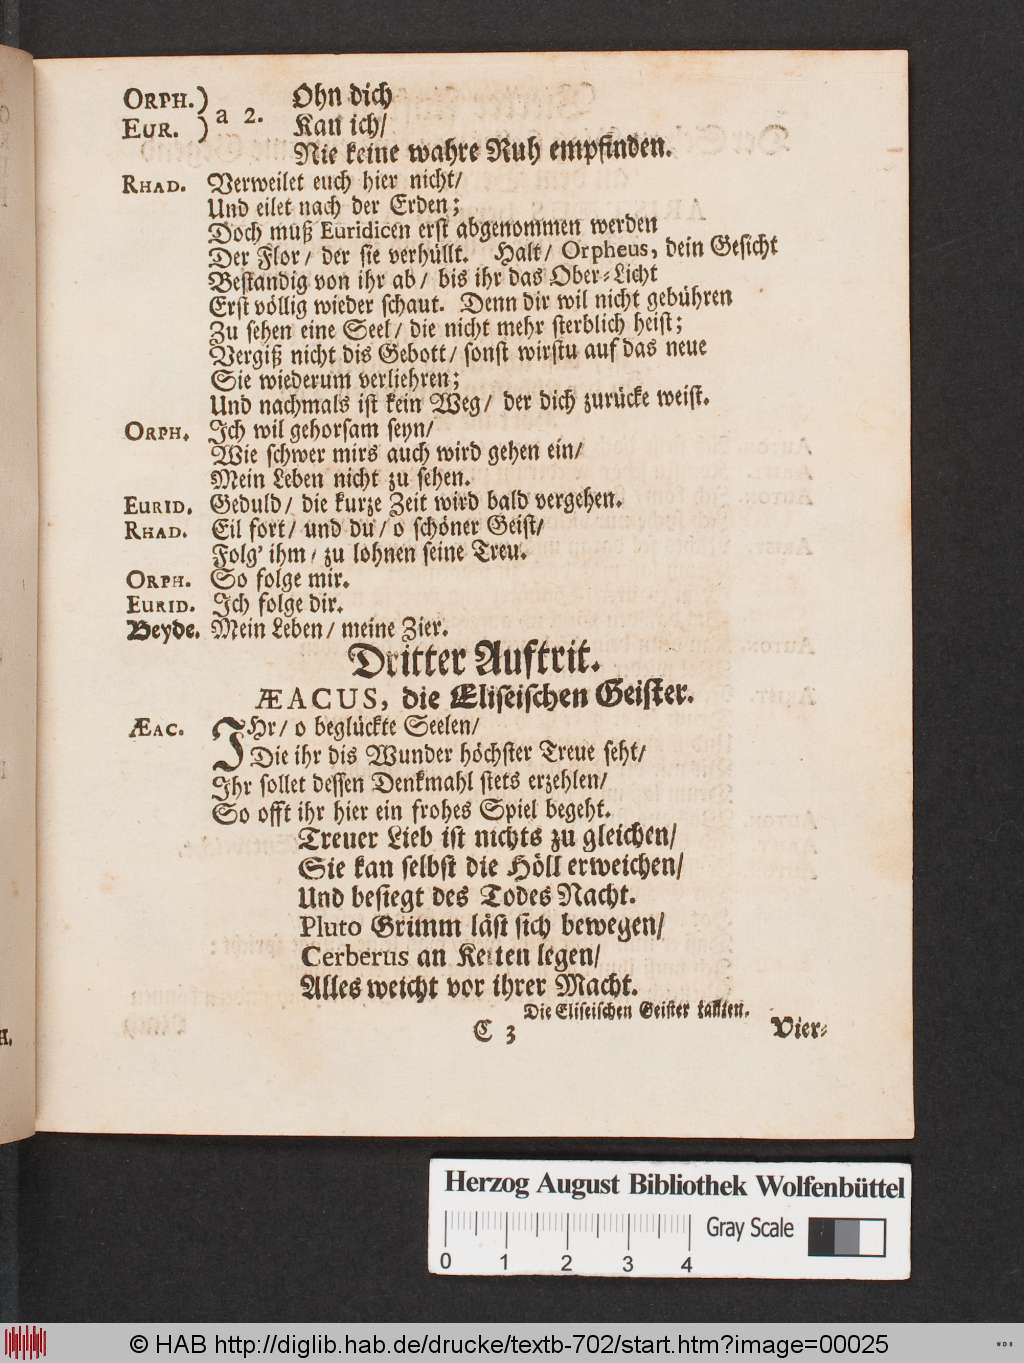 ORPH.) a 2. Ohn dich
EUR. ) Kan ich/
Nie keine wahre Ruh empfinden.
RHAD. Verweilet euch hier nicht/
Und eilet nach der Erden;
Doch muß Euridicen erst abgenommen werden
Der Flor/ der sie verhüllt. Halt/ Orpheus, dein Gesicht
Beständig von ihr ab/ bis ihr das Ober-Licht
Erst völlig wieder schaut. Denn dir wil nicht gebühren
Zu sehen eine Seel/ die nicht mehr sterblich heist;
Vergiß nicht dis Gebott/ sonst wirstu auf das neue
Sie wiederum verliehren;
Und nachmals ist kein Weg/ der dich zurücke weist.
ORPH. Ich wil gehorsam seyn/
Wie schwer mirs auch wird gehen ein/
Mein Leben nicht zu sehen.
EURID. Geduld/ die kurze Zeit wird bald vergehen.
RHAD. Eil fort/ und du/ o schöner Geist/
Folg' ihm/ zu lohnen seine Treu.
ORPH. So folge mir.
EURID. Ich folge dir.
Beyde. Mein Leben/ meine Zier.
Dritter Auftrit.
ÆACUS, die Eliseischen Geister.
ÆAC. IHr/ o beglückte Seelen/
Die ihr dis Wunder höchster Treue seht/
Ihr sollet dessen Denkmahl stets erzehlen/
So offt ihr hier ein frohes Spiel begeht.
Treuer Lieb ist nichts zu gleichen/
Sie kan selbst die Höll erweichen/
Und besiegt des Todes Nacht.
Pluto Grimm läst sich bewegen/
Cerberus an Ketten legen/
Alles weicht vor ihrer Macht.
Die Eliseischen Geister tantzen.
C 3 Vier-
Herzog August Bibliothek Wolfenbüttel
Gray Scale
0 1 2 3 4
© HAB http://diglib.hab.de/drucke/textb-702/start.htm?image=00025